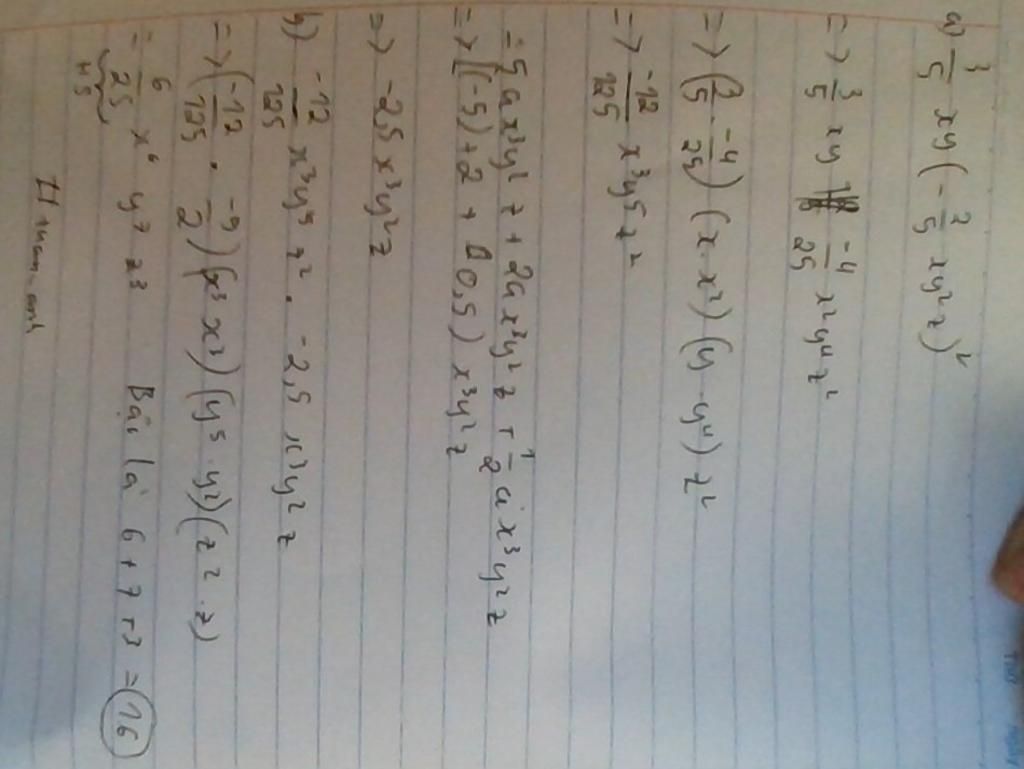 a) 3/5 xy (-2/5 xy²z)²
=> 3/5 xy -4/25 x²y⁴z²
=> (3/5 . -4/25) (x . x²) (y . y⁴) z²
=> -12/125 x³y⁵z²
= -5ax³y²z + 2ax³y²z + 1/2 ax³y²z
=> [(-5) + 2 + 0,5) x³y²z
=> -2,5 x³y²z
b) -12/125 x³y⁵z² . -2,5 x³y²z
=> (-12/125 . -5/2) (x³ x³) (y⁵ . y²) (z² . z)
= 6/25 x⁶ y⁷ z³ Bậc là 6 + 7 + 3 = 16